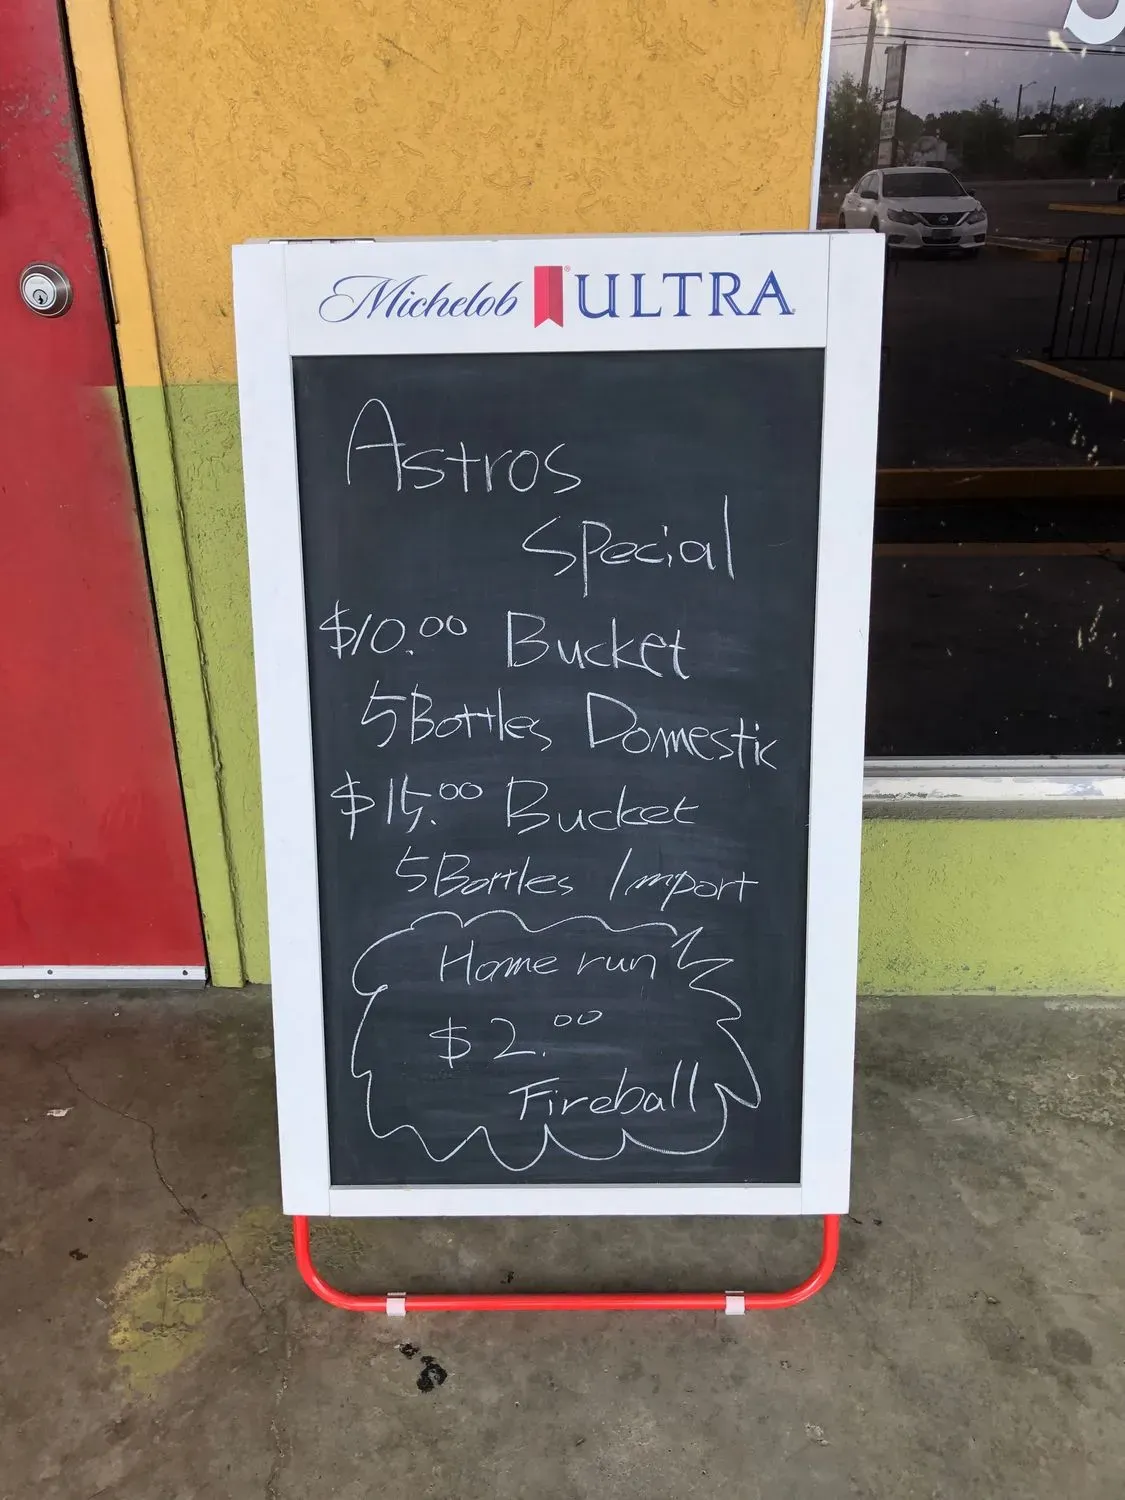 Michelob ULTRA
Astros
Special
$10.00 Bucket
5 Bottles Domestic
$15.00 Bucket
5 Bottles Import
Home run
$2.00
Fireball